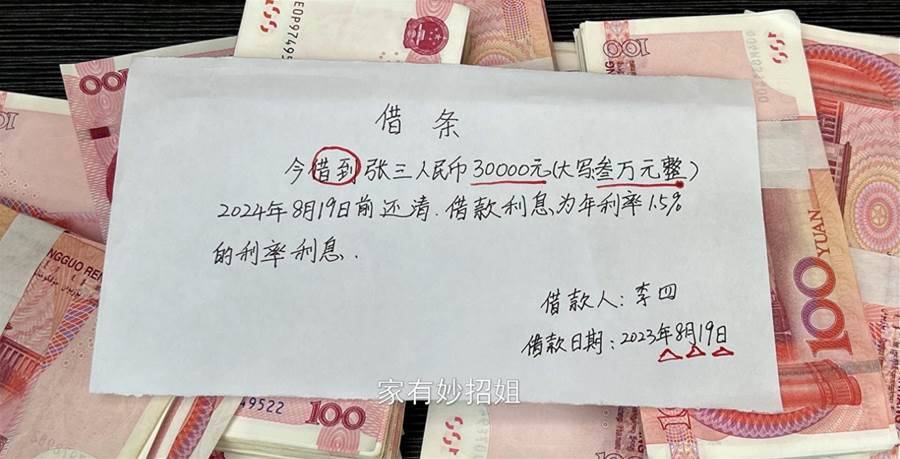 借条
今借到张三人民币30000元(大写:叁万元整)
2024年8月19日前还清.借款利息为年利率1.5%
的利率利息.
借款人:李四
借款日期:2023年8月19日
家有妙招姐
100
YUAN
100
100
100
100
49522